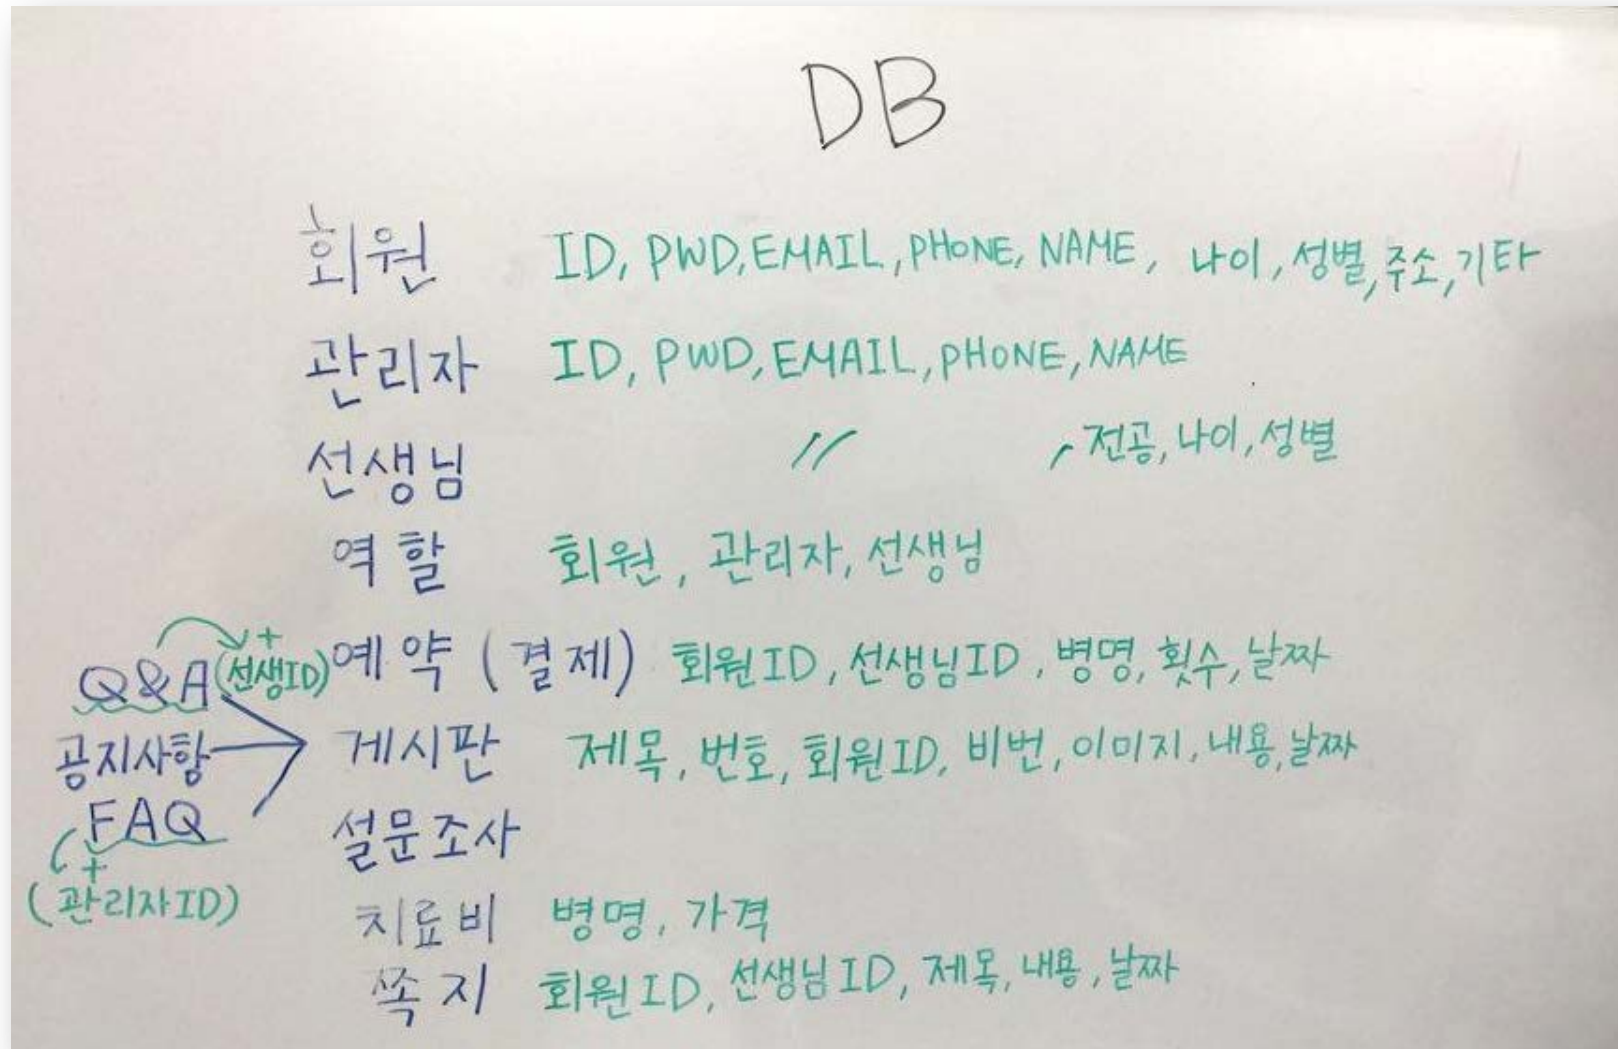 DB
회원 ID, PWD, EMAIL, PHONE, NAME, 나이, 성별, 주소, 기타
관리자 ID, PWD, EMAIL, PHONE, NAME
선생님 〃 , 전공, 나이, 성별
역할 회원, 관리자, 선생님
예약 (결제) 회원ID, 선생님ID, 병명, 횟수, 날짜
Q&A + (선생ID)
공지사항
FAQ
+
(관리자ID)
게시판 제목, 번호, 회원ID, 비번, 이미지, 내용, 날짜
설문조사
치료비 병명, 가격
쪽지 회원ID, 선생님ID, 제목, 내용, 날짜